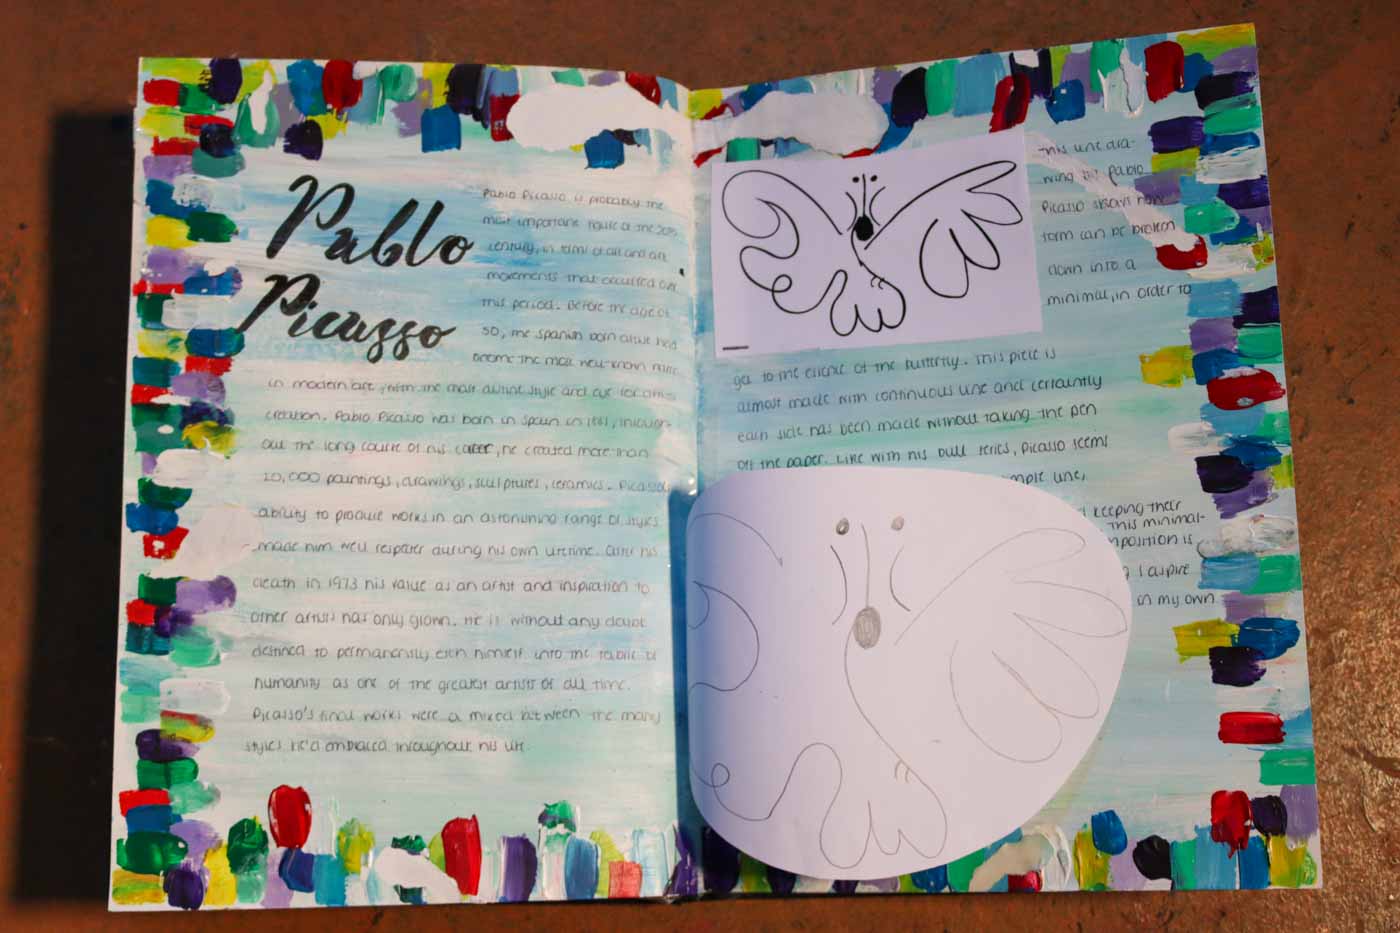 Pablo
Picasso
Pablo Picasso is probably the
most important figure of the 20th
century, in terms of art and art
movements that occurred over
this period. Before the age of
50, the spanish born artist had
become the most well-known name
in modern art, with the most distinct style and eye for artistic
creation. Pablo Picasso was born in Spain in 1881, through-
out the long course of his career, he created more than
20,000 paintings, drawings, sculptures, ceramics. Picasso's
ability to produce works in an astonishing range of styles
made him well respected during his own lifetime. After his
death in 1973 his value as an artist and inspiration to
other artists has only grown. He is without any doubt
destined to permanently etch himself into the fabric of
humanity as one of the greatest artists of all time.
Picasso's final works were a mixed between the many
styles he'd embraced throughout his life.
This line dra-
wing by Pablo
Picasso shows how
form can be broken
down into a
minimal, in order to
get to the essence of the butterfly. This piece is
almost made with continuous line and certaintly
each side has been made without taking the pen
off the paper. Like with his bull series, Picasso seems
line,
keeping their
This minimal-
is
I aspire
in my own